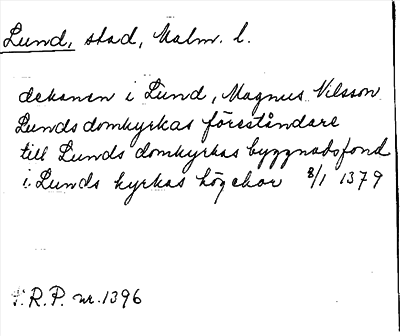 Lund, stad, Malm. l.
dekanen i Lund, Magnus Nilsson
Lunds domkyrkas föreståndare
till Lunds domkyrkas byggnadsfond
i Lunds kyrkas högchor 8/1 1379
S.R.P. nr. 1396